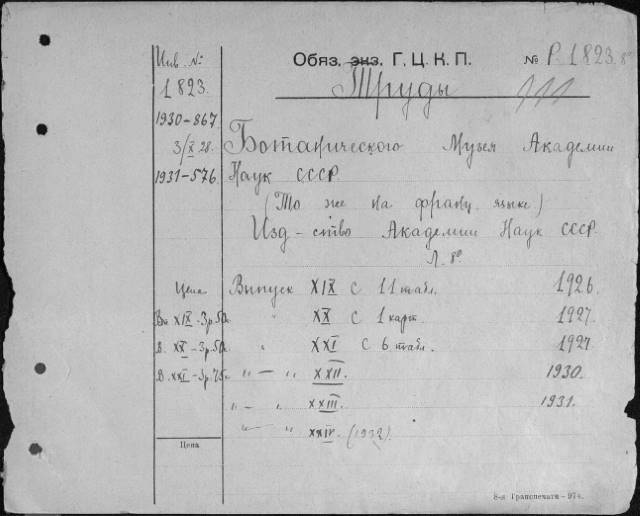 Инв. №
Обяз. экз. Г. Ц. К. П.
№ Р. 1823. 8°
1823.
Труды
1930-867
3/X 28.
Ботанического Музея Академии
1931-576.
Наук СССР.
(То же на франц. языке)
Изд-ство Академии Наук СССР.
Л. 8°
Цена
Выпуск XIX с 11 табл. 1926.
В. XIX-3р.50.
" XX с 1 карт. 1927.
В. XX-3р.50.
" XXI с 6 табл. 1927
В. XXI-3р.75к.
" — " XXII. 1930.
" — " XXIII. 1931.
" — " XXIV. (1932).
Цена
8-я Гранспечати—974.